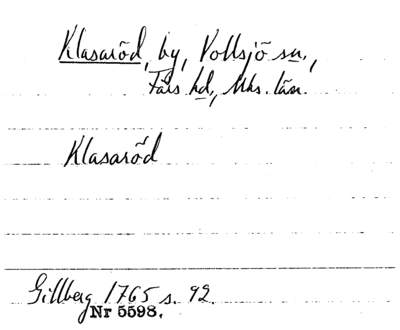 Klasaröd, by, Vollsjö sn.,
Färs hd, Mhs. län.
Klasaröd
Gillberg 1765 s. 92.
Nr 5598.